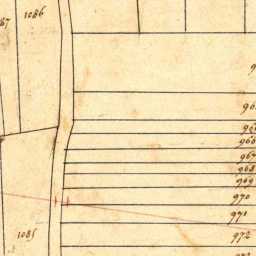 1086
87
966
967
968
969
970
971
972
1085